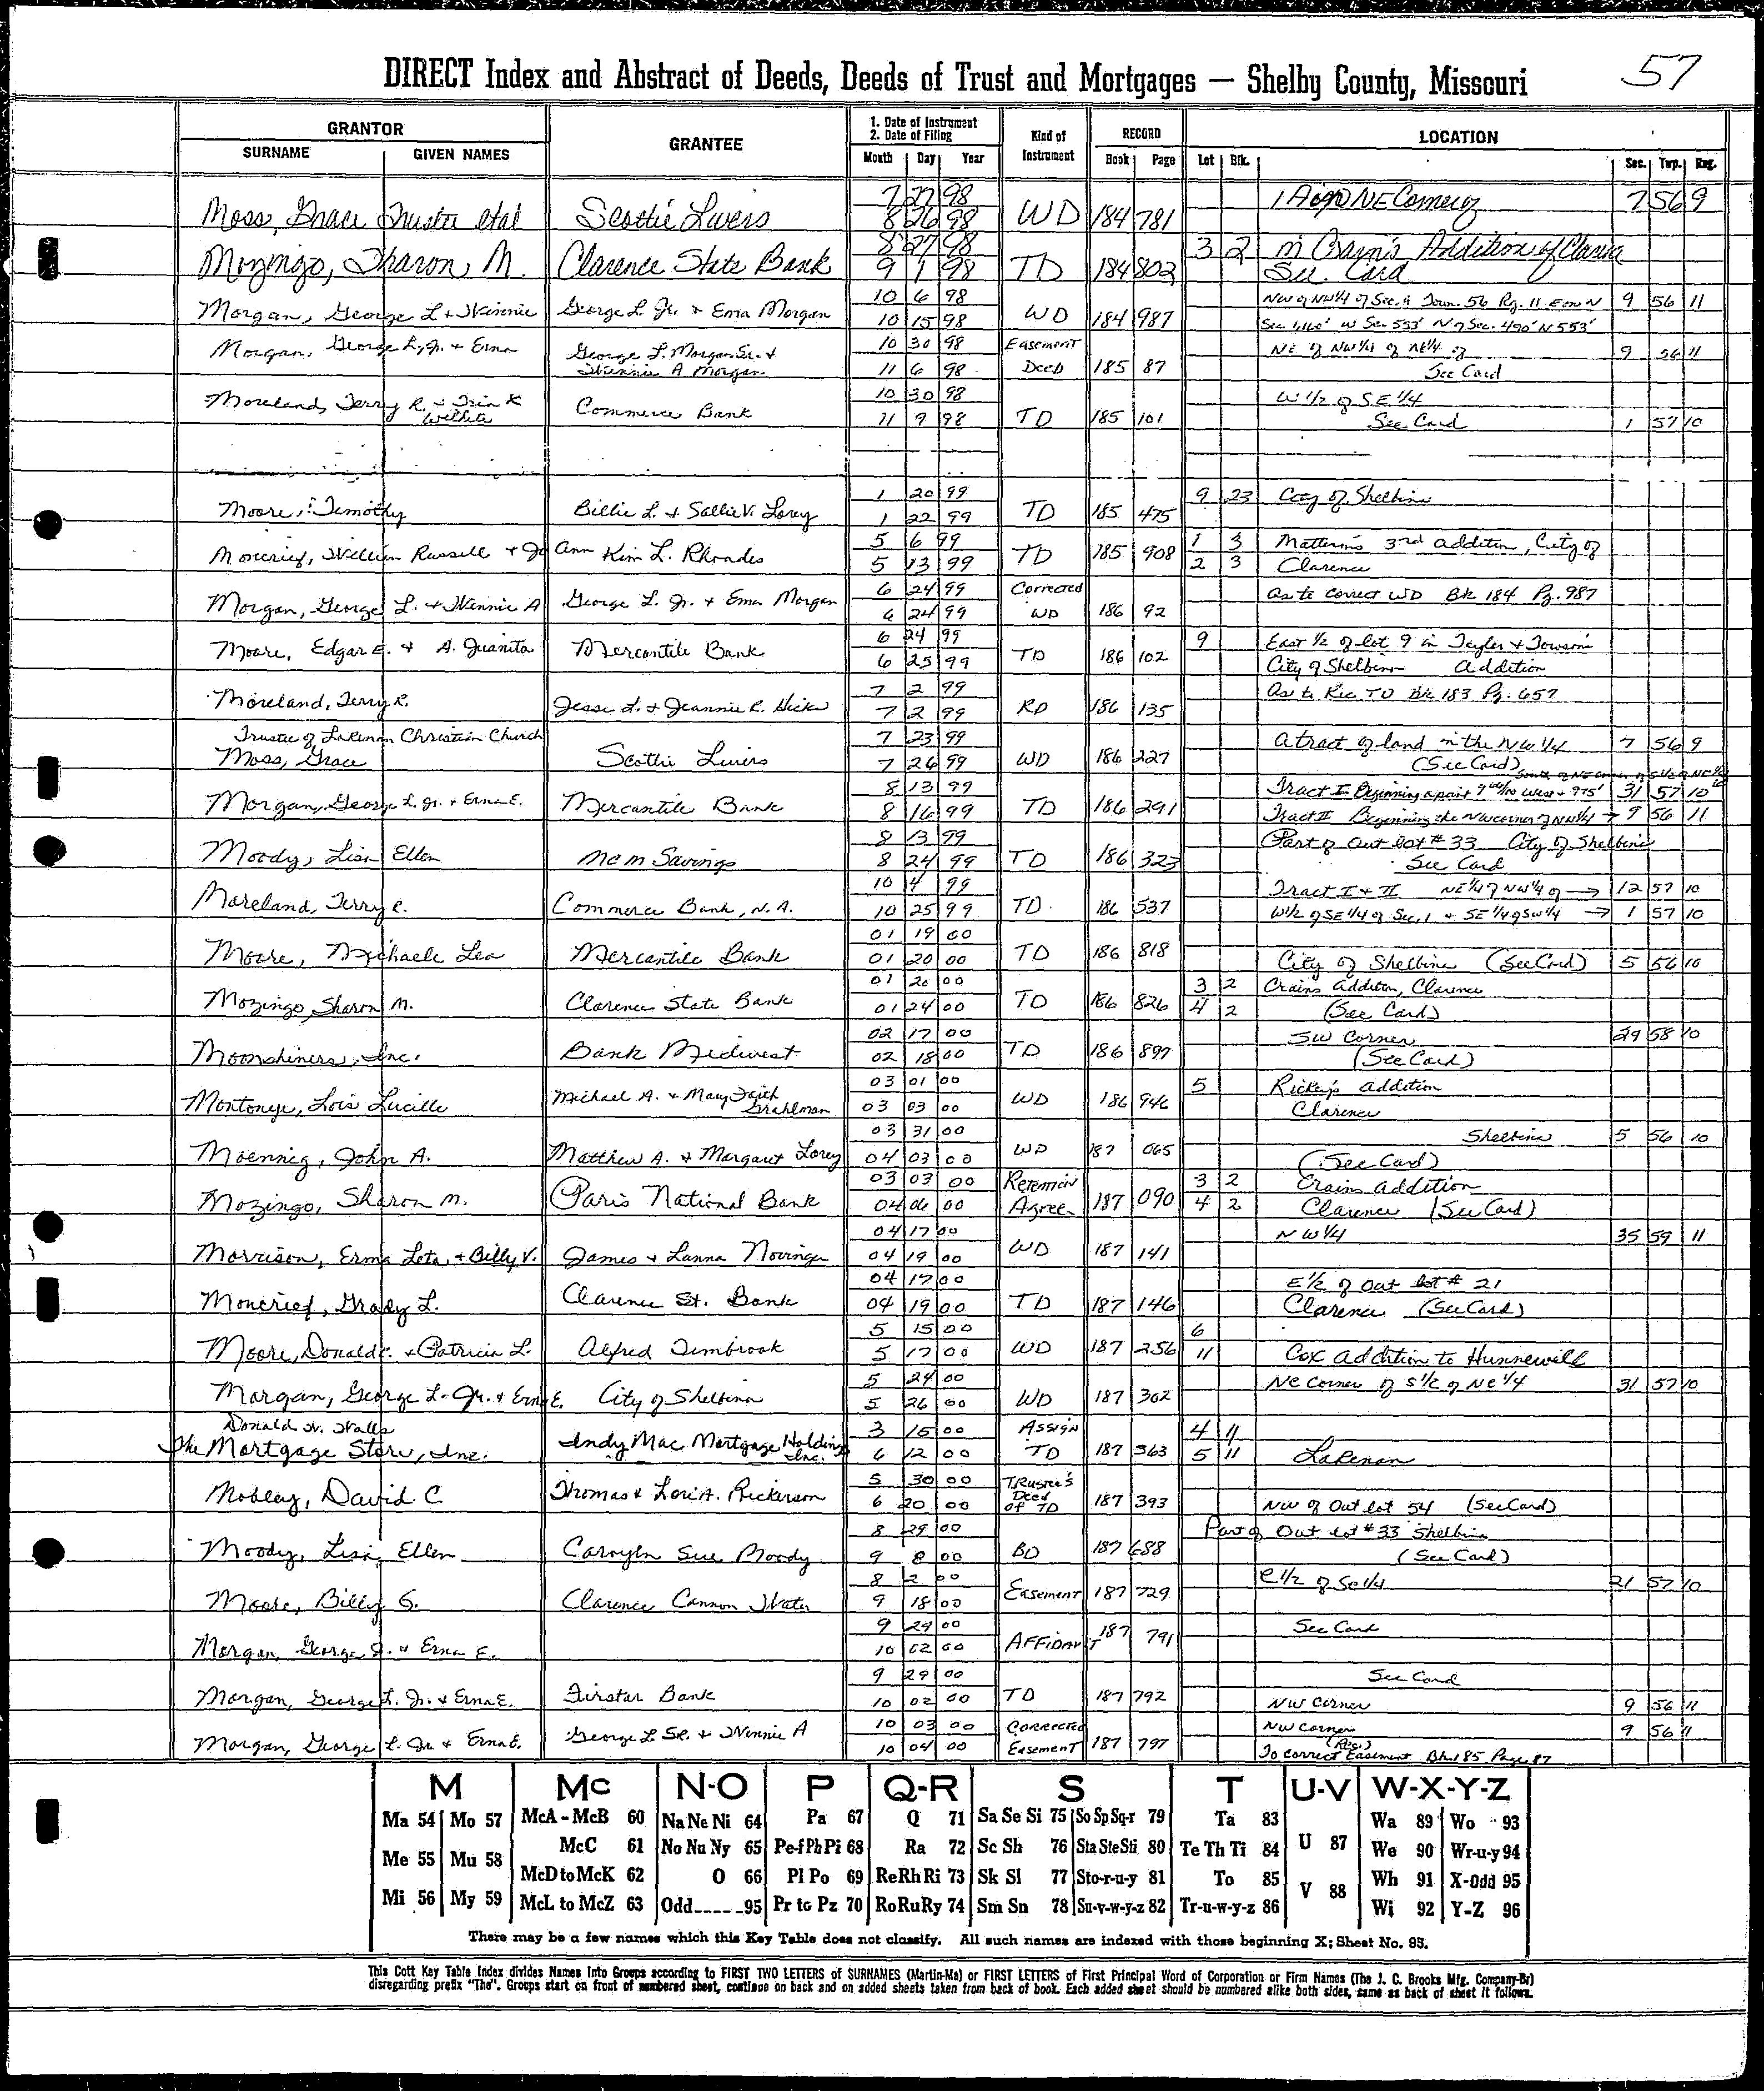 57
DIRECT Index and Abstract of Deeds, Deeds of Trust and Mortgages — Shelby County, Missouri
GRANTOR GRANTEE 1. Date of Instrument 2. Date of Filing Kind of Instrument RECORD LOCATION
SURNAME GIVEN NAMES Month Day Year Book Page Lot Blk. Sec. Twp. Rng.
7 27 98 1 A NE Corner of 7 56 9
Moss, Grace Trustee etal Scottie Livers 8 26 98 WD 184 781
8 27 98 3 2 in Crain's Addition of Clarence
Mozingo, Sharon, M. Clarence State Bank 9 1 98 TD 184 802 See Card
10 6 98 NW of NW1/4 of Sec. 9 Town. 56 Rg. 11 9 56 11
Morgan, George L + Winnie George L. Jr. + Erna Morgan 10 15 98 WD 184 987
Morgan, George L, Jr. + Erna George L. Morgan Sr. + 10 30 98 Easement NE of NW1/4 of NE1/4 of 9 56 11
Winnie A Morgan 11 6 98 Deed 185 87 See Card
Moreland, Terry R. + Trin K 10 30 98 W1/2 of SE1/4
Willhite Commerce Bank 11 9 98 TD 185 101 See Card 1 57 10
1 20 99 9 23 City of Shelbina
Moore, Timothy Billie L. + Sallie V. Lorey 1 22 99 TD 185 475
5 6 99 1 3 Mattern's 3rd addition, City of
Moncrief, William Russell + Jo Ann Kim L. Rhoades 5 13 99 TD 185 908 2 3 Clarence
6 24 99 Corrected as to correct WD Bk 184 Pg. 987
Morgan, George L. + Winnie A George L. Jr. + Erna Morgan 6 24 99 WD 186 92
6 24 99 9 East 1/2 of lot 9 in Taylor + Towson's
Moore, Edgar E. + A. Juanita Mercantile Bank 6 25 99 TD 186 102 City of Shelbina Addition
7 2 99 as to Rec TD Bk 183 Pg. 657
Moreland, Terry R. Jesse L. + Jeannie R. Hicks 7 2 99 RD 186 135
Trustee of Lakenan Christian Church 7 23 99 A tract of land in the NW1/4 7 56 9
Moss, Grace Scottie Livers 7 26 99 WD 186 227 (See Card)
South of NE corner of S1/2 of NE1/4
8 13 99 Tract I Beginning a point West + 975' 31 57 10
Morgan, George L. Jr. + Erna E. Mercantile Bank 8 16 99 TD 186 291 Tract II Beginning the NW corner of NW1/4 → 9 56 11
8 13 99 Part of Out lot #33 City of Shelbina
Moody, Lisa Ellen MCM Savings 8 24 99 TD 186 323 See Card
10 4 99 Tract I + II NE1/4 of NW1/4 of → 12 57 10
Moreland, Terry R. Commerce Bank, N.A. 10 25 99 TD 186 537 W1/2 of SE1/4 of Sec. 1 + SE1/4 of SW1/4 → 1 57 10
01 19 00
Moore, Michaele Lea Mercantile Bank 01 20 00 TD 186 818 City of Shelbina (See Card) 5 56 10
01 20 00 3 2 Crains Addition, Clarence
Mozingo, Sharon M. Clarence State Bank 01 24 00 TD 186 826 4 2 (See Card)
02 17 00 SW Corner 29 58 10
Moonshiners, Inc. Bank Midwest 02 18 00 TD 186 897 (See Card)
03 01 00 5 Rickey's addition
Montonye, Lois Lucille Michael A. + Mary Faith Grahlman 03 03 00 WD 186 946 Clarence
03 31 00 Shelbina 5 56 10
Moennig, John A. Matthew A. + Margaret Lorey 04 03 00 WD 187 065 (See Card)
03 03 00 3 2 Crains addition
Mozingo, Sharon M. Paris National Bank 04 06 00 Agree. 187 090 4 2 Clarence (See Card)
04 17 00 NW1/4 35 59 11
Morrison, Erma Leta, + Billy V. James + Lanna Novinger 04 19 00 WD 187 141
04 17 00 E1/2 of Out lot # 21
Moncrief, Grady L. Clarence St. Bank 04 19 00 TD 187 146 Clarence (See Card)
5 15 00 6
Moore, Donald C. + Patricia L. Alfred Timbrook 5 17 00 WD 187 256 11 Cox Addition to Hunnewell
5 24 00 NE corner of S1/2 of NE1/4 31 57 10
Morgan, George L. Jr. + Erna E. City of Shelbina 5 26 00 WD 187 302
Donald W. Walls 3 15 00 Assign 4 11
The Mortgage Store, Inc. Indy Mac Mortgage Holdings Inc. 6 12 00 TD 187 363 5 11 Lakenan
5 30 00 Trustee's
Mobley, David C Thomas + Lori A. Rickerson 6 20 00 Deed of TD 187 393 NW of Out lot 54 (See Card)
8 29 00 Part of Out lot #33 Shelbina
Moody, Lisa, Ellen Caroyln Sue Moody 9 8 00 BD 187 688 (See Card)
8 2 00 E1/2 of SE1/4 21 57 10
Moore, Billy G. Clarence Cannon Water 9 18 00 Easement 187 729
9 29 00 See Card
Morgan, George J. + Erna E. 10 02 00 AFFIDAVIT 187 791
9 29 00 See Card
Morgan, George L. Jr. + Erna E. Firstar Bank 10 02 00 TD 187 792 NW Corner 9 56 11
10 03 00 Corrected NW Corner 9 56 11
Morgan, George L. Jr. + Erna E. George L Sr. + Winnie A 10 04 00 Easement 187 797 (Rec) To correct Easement Bk. 185 Page 87
M Mc N-O P Q-R S T U-V W-X-Y-Z
Ma 54 Mo 57 McA - McB 60 Na Ne Ni 64 Pa 67 Q 71 Sa Se Si 75 So Sp Sq-r 79 Ta 83 U 87 Wa 89 Wo 93
Me 55 Mu 58 McC 61 No Nu Ny 65 Pe-f Ph Pi 68 Ra 72 Sc Sh 76 Sta Ste Sti 80 Te Th Ti 84 We 90 Wr-u-y 94
McD to McK 62 O 66 Pl Po 69 Re Rh Ri 73 Sk Sl 77 Sto-r-u-y 81 To 85 V 88 Wh 91 X-Odd 95
Mi 56 My 59 McL to McZ 63 Odd-----95 Pr to Pz 70 Ro Ru Ry 74 Sm Sn 78 Su-v-w-y-z 82 Tr-u-w-y-z 86 Wi 92 Y-Z 96
There may be a few names which this Key Table does not classify. All such names are indexed with those beginning X; Sheet No. 95.
This Cott Key Table Index divides Names Into Groups according to FIRST TWO LETTERS of SURNAMES (Martin-Ma) or FIRST LETTERS of First Principal Word of Corporation or Firm Names (The J. C. Brooks Mfg. Company-Br)
disregarding prefix "The". Groups start on front of numbered sheet, continue on back and on added sheets taken from back of book. Each added sheet should be numbered alike both sides, same as back of sheet it follows.